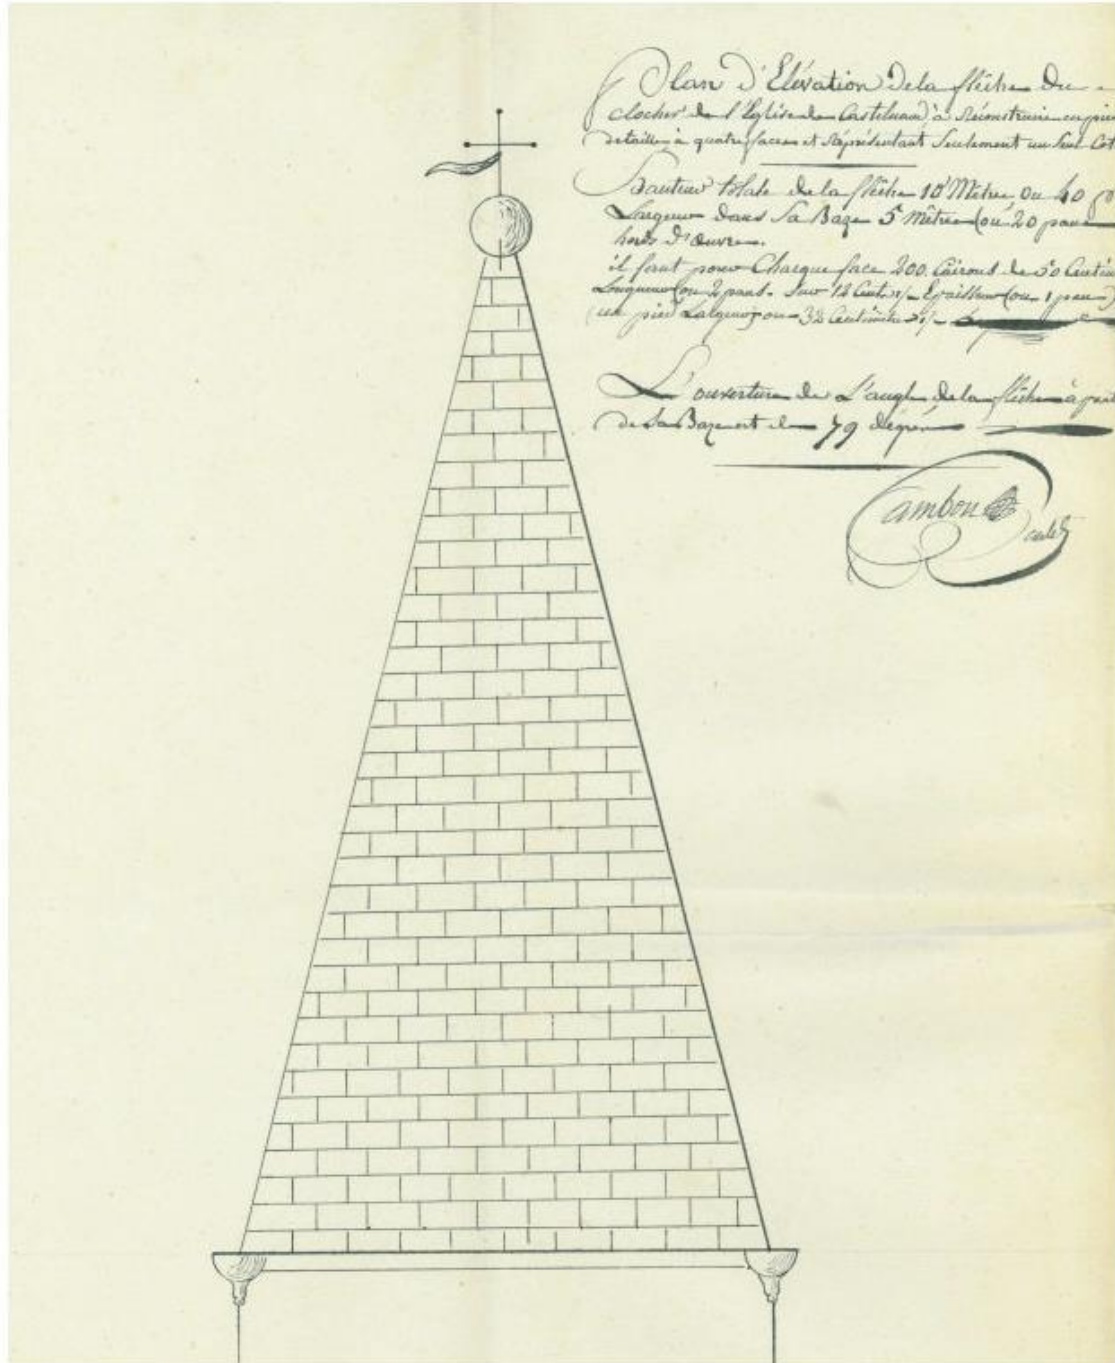 Plan d'Elévation De la flêche Du
clocher de l'Eglise de Castelnaud à Réconstruire en pier
détaillé à quatre faces et Réprésentant Seulement un Seul Cot
Hauteur totale de la flêche 10 Mètres Ou 40 p
Largeur dans Sa Baze 5 Mêtres (ou 20 pans
hors d'œuvre.
il faut pour Chaque face 200. Cairons de 50 Centim
Longueur (ou 2 pans. Sur 12 Cent. ½ Epaisseur (ou 1 pan)
un pied Largeur) ou 32 Centimètres ½
L'ouverture de L'angle de la flêche à part
de Sa Baze est de 79 dégrés
Cambou